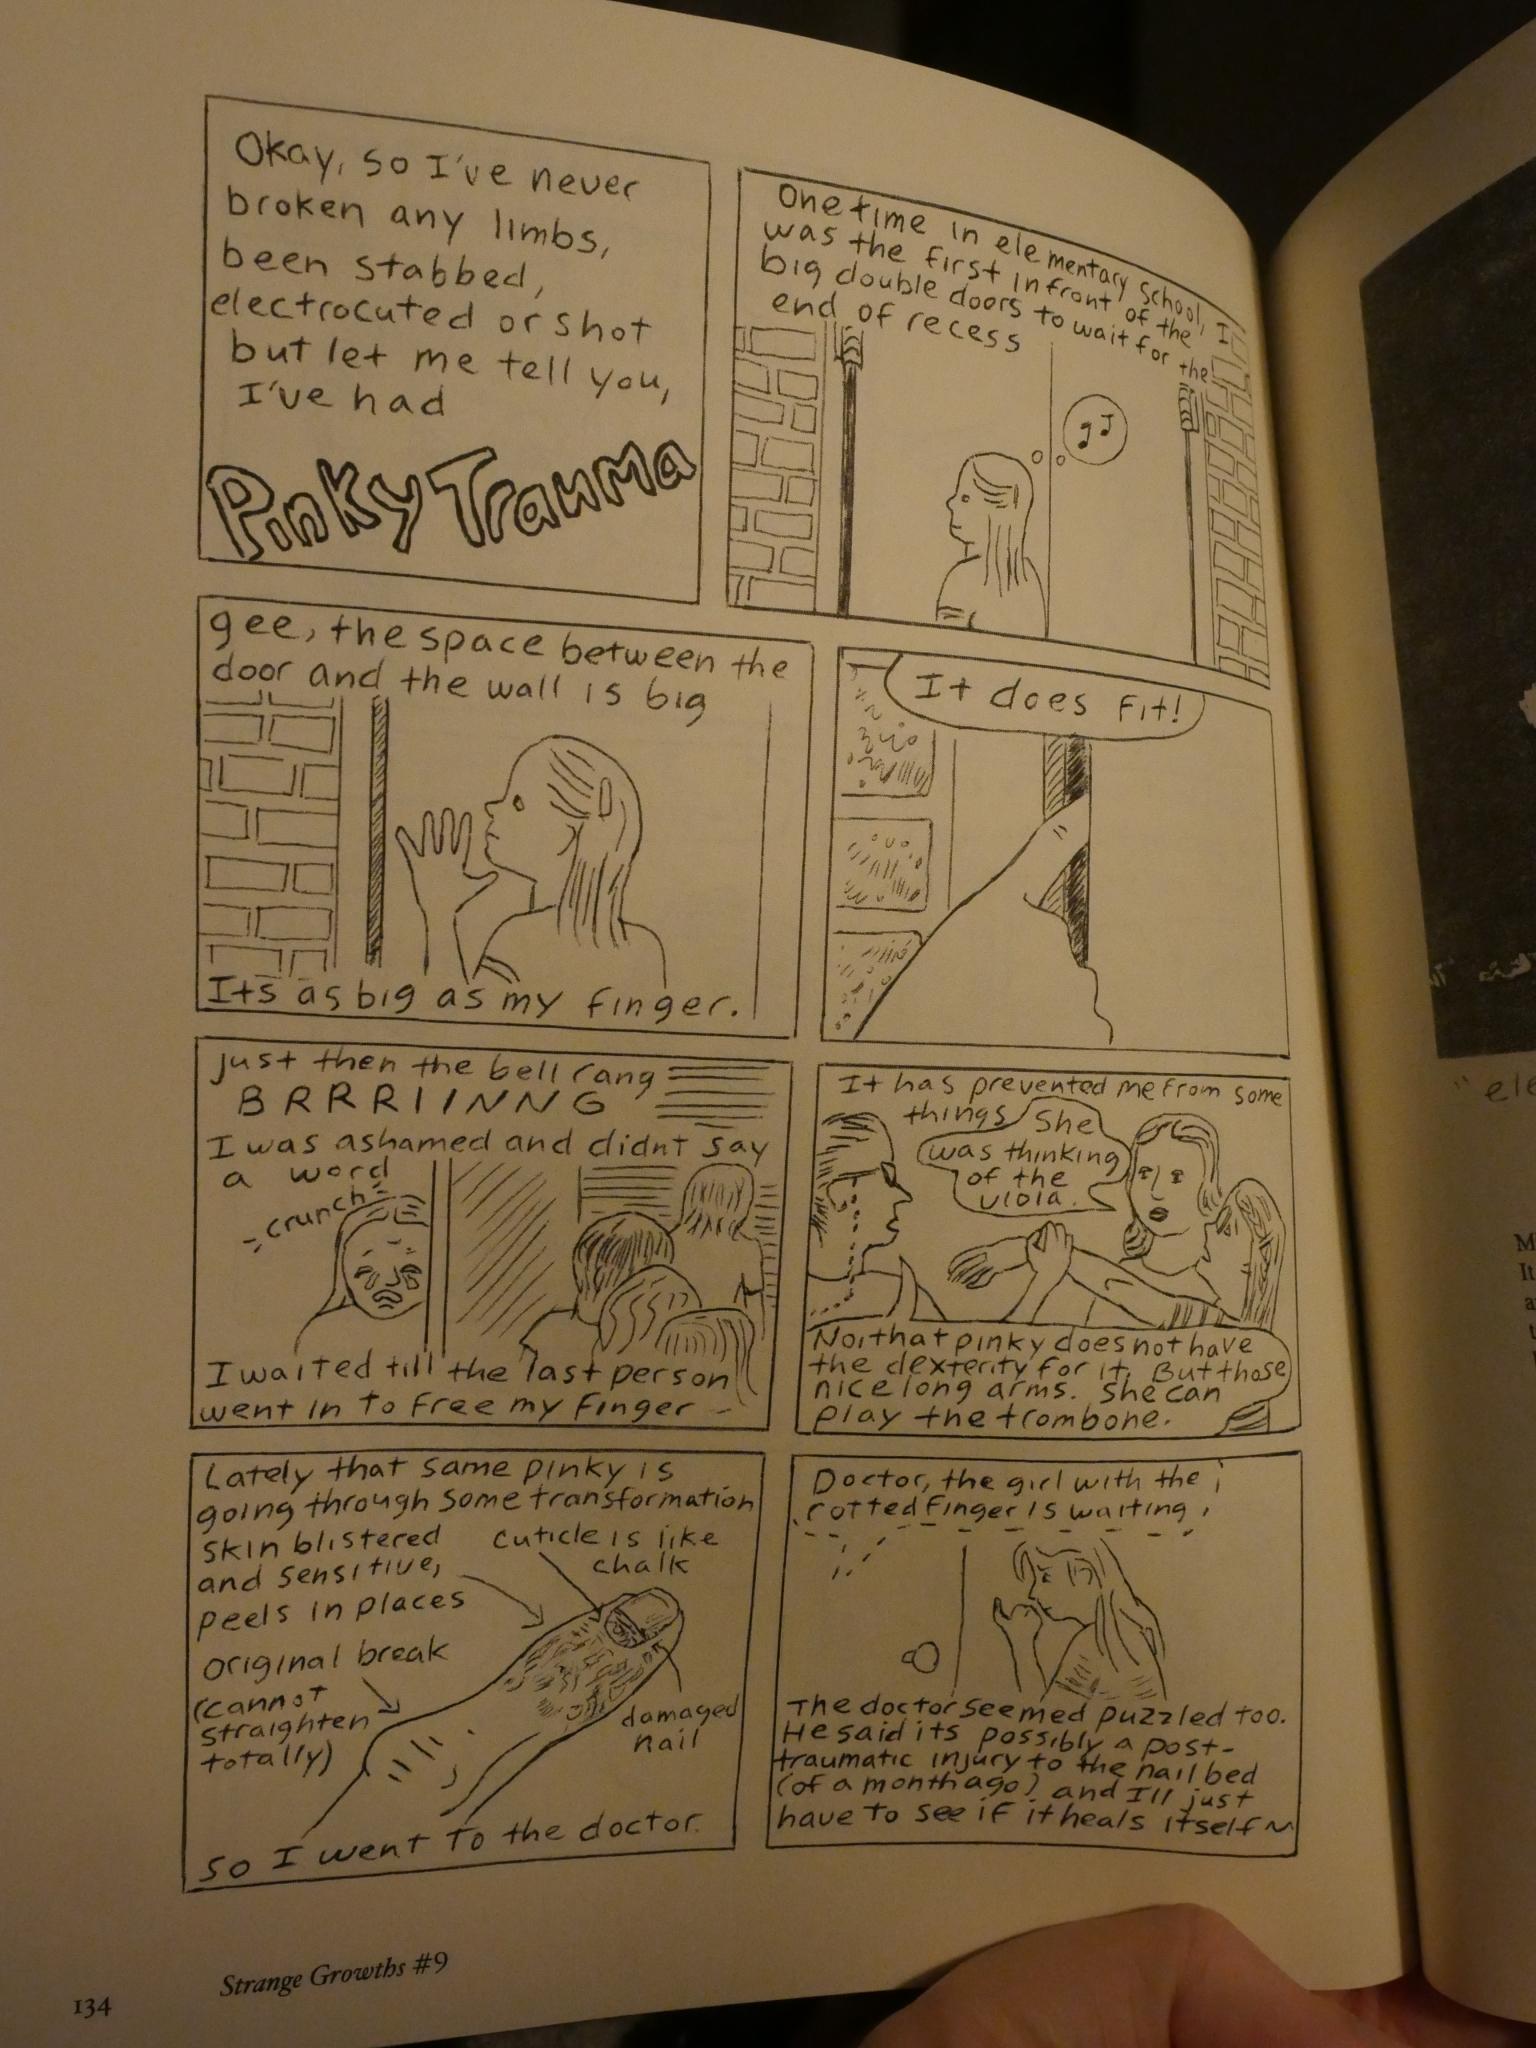 Okay, so I've never
broken any limbs,
been stabbed,
electrocuted or shot
but let me tell you,
I've had
Pinky Trauma
One time in elementary school, I
was the first infront of the
big double doors to wait for the
end of recess
gee, the space between the
door and the wall is big
Its as big as my finger.
It does fit!
just then the bell rang
BRRRIINNG
I was ashamed and didnt say
a word
crunch
I waited till the last person
went in to free my finger
It has prevented me from some
things
She
was thinking
of the
viola.
No, that pinky does not have
the dexterity for it. But those
nice long arms. She can
play the trombone.
Lately that same pinky is
going through some transformation
skin blistered
and sensitive,
peels in places
cuticle is like
chalk
original break
(cannot
straighten
totally)
damaged
nail
so I went to the doctor.
Doctor, the girl with the
rotted finger is waiting!
The doctor seemed puzzled too.
He said its possibly a post-
traumatic injury to the nail bed
(of a month ago) and I'll just
have to see if it heals itself ~
134
Strange Growths #9